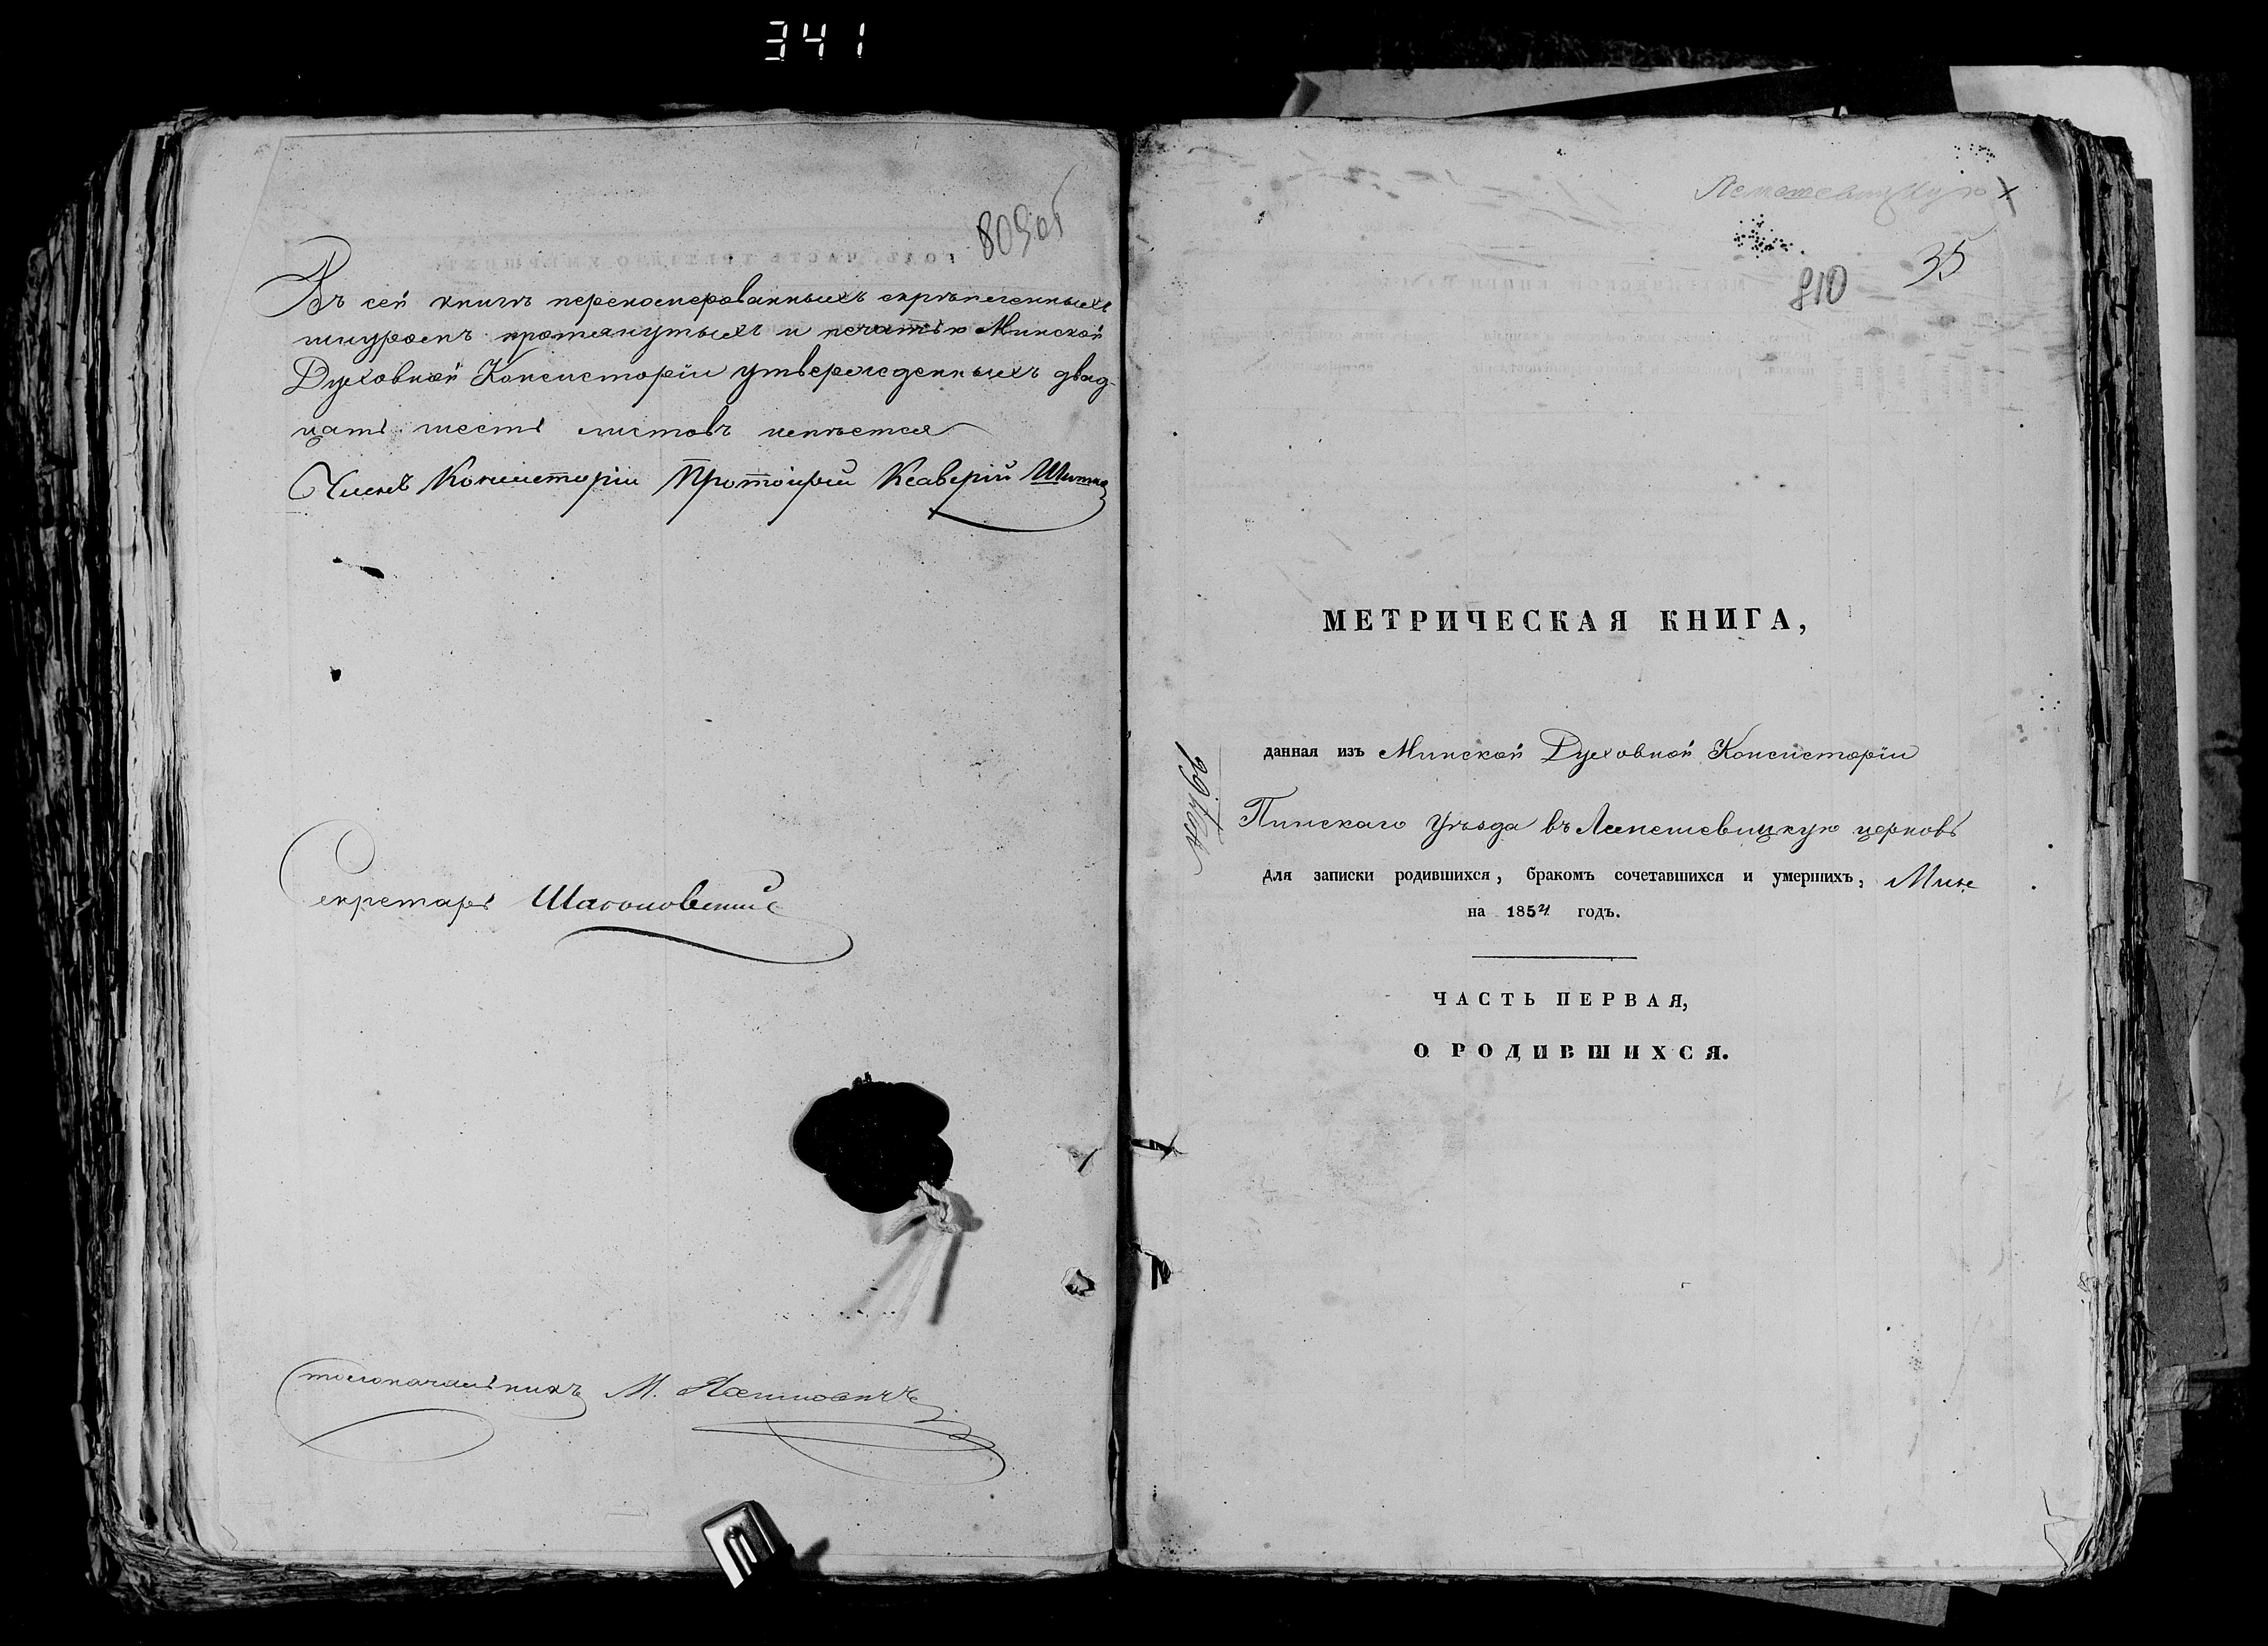 341
809об
Въ сей книгѣ перенумерованныхъ скрѣпленныхъ
шнуромъ протянутыхъ и печатью Минской
Духовной Консисторіи утвержденныхъ двад-
цать шесть листовъ имѣется
Членъ Консисторіи Протоіерей Ксаверій
Секретарь
Столоначальникъ М.
35
810
МЕТРИЧЕСКАЯ КНИГА,
данная изъ Минской Духовной Консисторіи
Пинскаго Уѣзда въ Лемешевицкую церковь
для записки родившихся, бракомъ сочетавшихся и умершихъ,
на 1854 годъ.
ЧАСТЬ ПЕРВАЯ,
О РОДИВШИХСЯ.